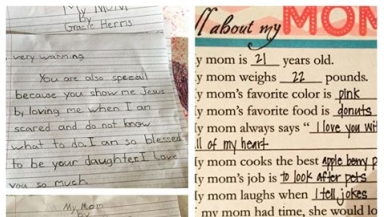 My Mom
by
Gracie Herris
very warming
You are also speceal
because you show me Jesus
by loving me when I am
scared and do not know
what to do. I am so blessed
to be your daughter. I love
you so much
My Mom
by
ll about my MOM
y mom is 21 years old.
y mom weighs 22 pounds.
y mom's favorite color is pink
y mom's favorite food is donuts
y mom always says "I love you wit
ll of my heart
y mom cooks the best apple berry p
y mom's job is to look after pets
y mom laughs when I tell jokes
my mom had time, she would lo